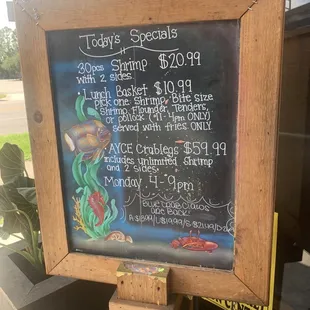 Today's Specials
30pcs Shrimp $20.99
with 2 sides.
• Lunch Basket $10.99
pick one: Shrimp, Bite size
Shrimp, Flounder, Tenders,
or pollock (11-4 ONLY)
served with fries ONLY
• AYCE Crablegs $59.99
includes unlimited Shrimp
and 2 sides.
Monday 4-9pm
Blue Crab Clavis
are Back!